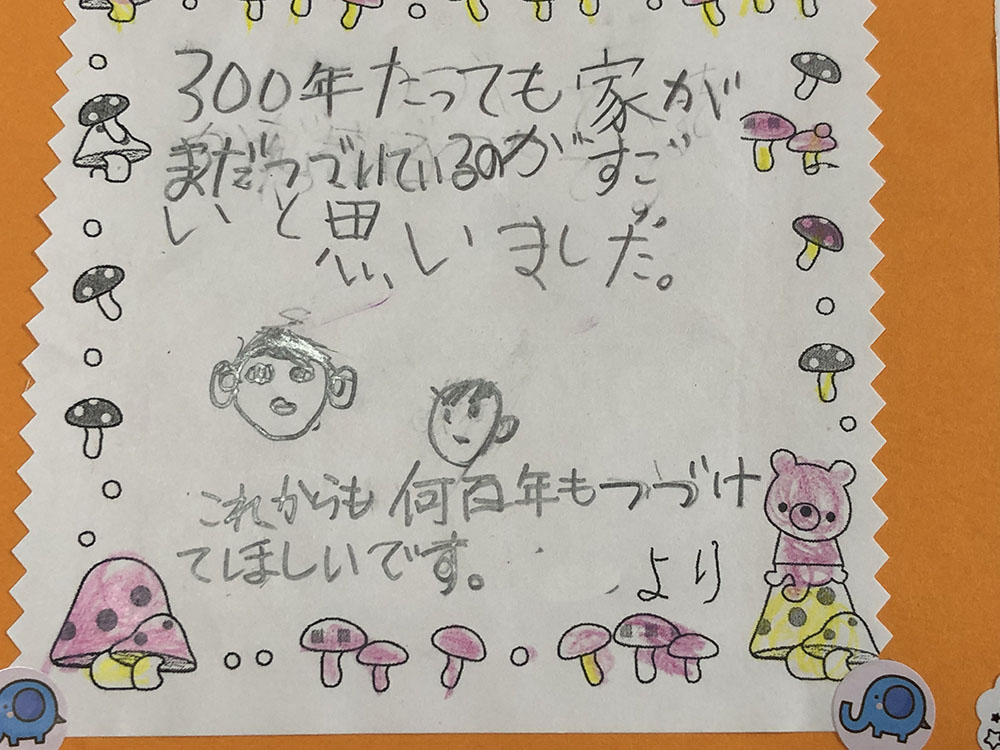 300年たっても家が
まだつづいているのがすご
いと思いました。
これからも何百年もつづけ
てほしいです。
より